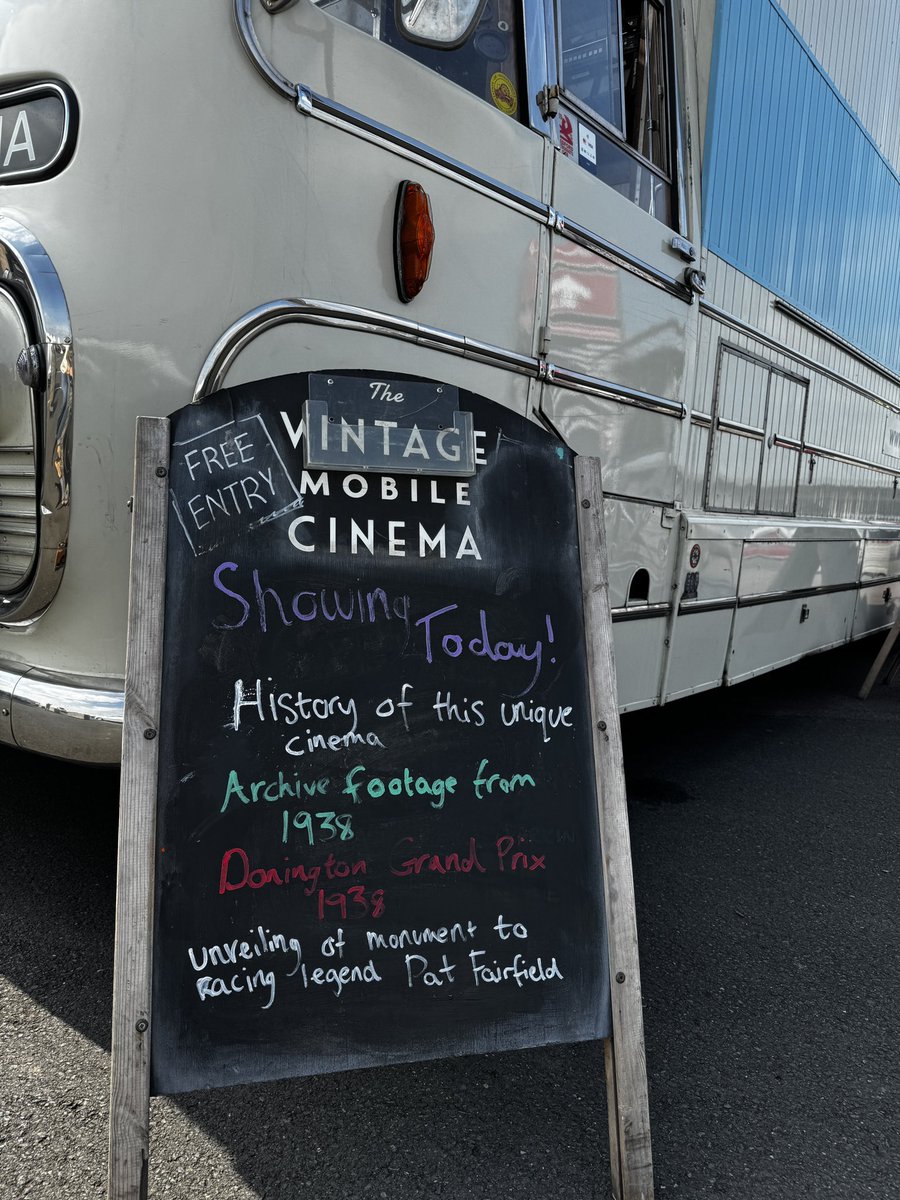 The
VINTAGE
MOBILE
CINEMA
FREE
ENTRY
Showing
Today!
History of this unique
cinema
Archive footage from
1938
Donington Grand Prix
1938
unveiling of monument to
racing legend Pat Fairfield